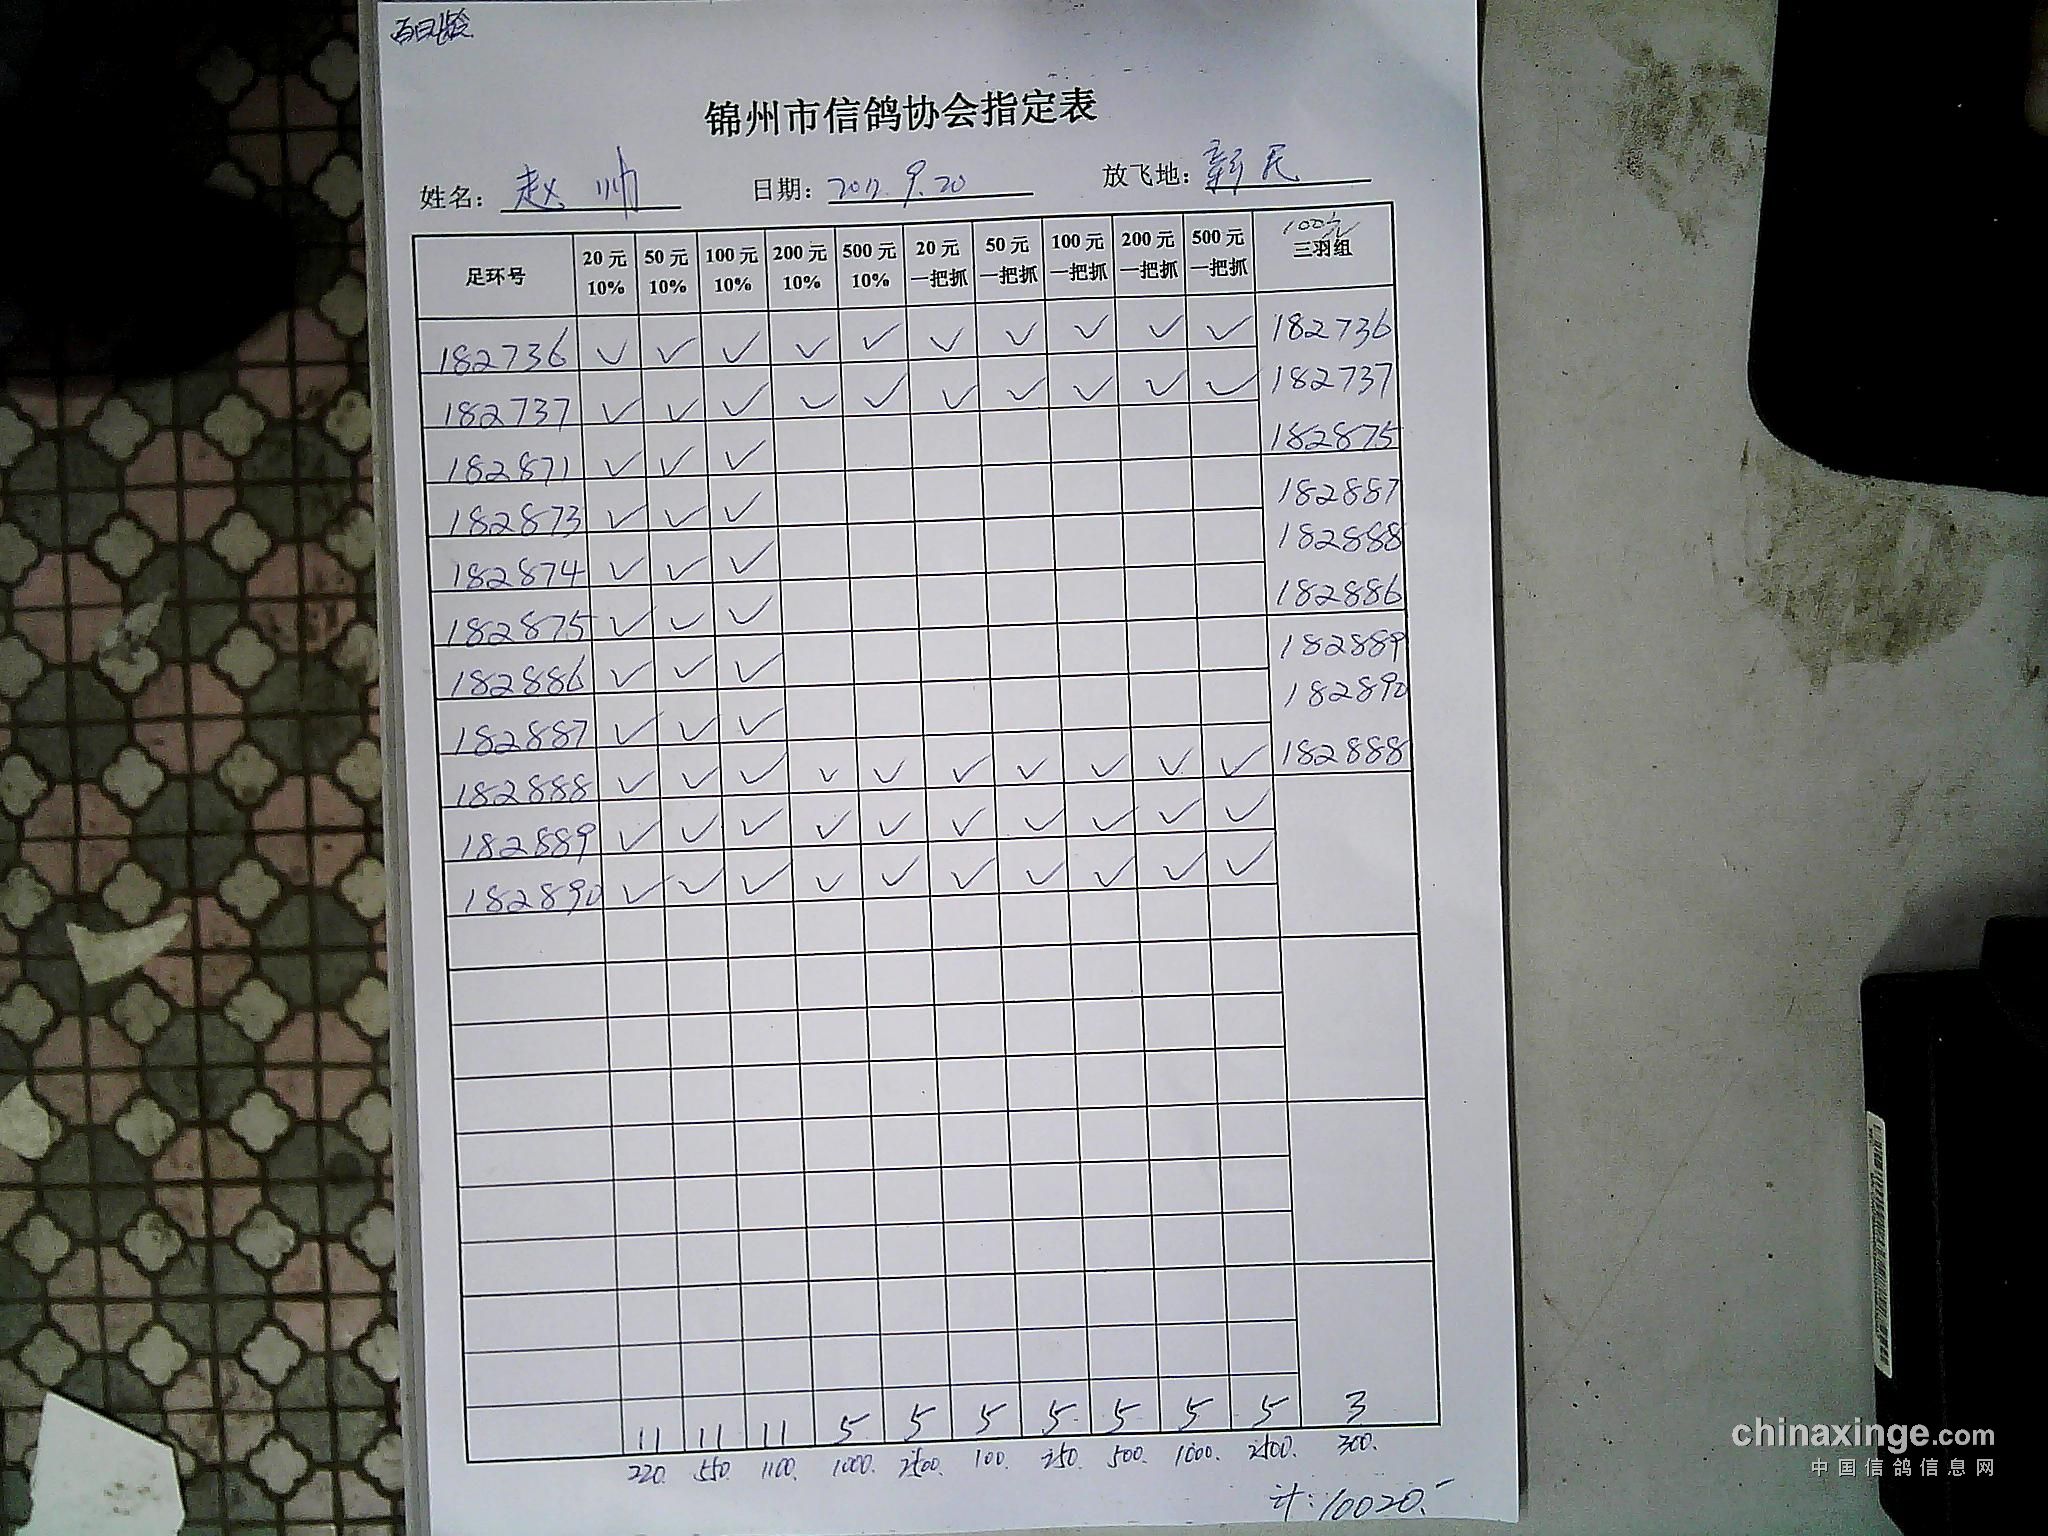 百日龄
锦州市信鸽协会指定表
姓名: 赵帅 日期: 2017.9.20 放飞地: 新民
足环号 20元 10% 50元 10% 100元 10% 200元 10% 500元 10% 20元 一把抓 50元 一把抓 100元 一把抓 200元 一把抓 500元 一把抓 100元 三羽组
182736 ✓ ✓ ✓ ✓ ✓ ✓ ✓ ✓ ✓ ✓ 182736
182737 ✓ ✓ ✓ ✓ ✓ ✓ ✓ ✓ ✓ ✓ 182737
182871 ✓ ✓ ✓ 182875
182873 ✓ ✓ ✓ 182887
182874 ✓ ✓ ✓ 182888
182875 ✓ ✓ ✓ 182886
182886 ✓ ✓ ✓ 182889
182887 ✓ ✓ ✓ 182890
182888 ✓ ✓ ✓ ✓ ✓ ✓ ✓ ✓ ✓ ✓ 182888
182889 ✓ ✓ ✓ ✓ ✓ ✓ ✓ ✓ ✓ ✓
182890 ✓ ✓ ✓ ✓ ✓ ✓ ✓ ✓ ✓ ✓
11 11 11 5 5 5 5 5 5 5 3
220. 550. 1100. 1000. 2500. 100. 250. 500. 1000. 2500. 300.
计: 10020.-
chinaxinge.com
中国信鸽信息网